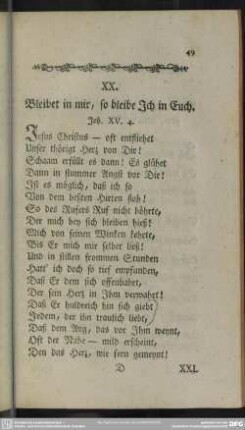 49
XX.
Bleibet in mir, so bleibe Ich in Euch.
Joh. XV. 4.
Jesus Christus — oft entfliehet
Unser thörigt Herz von Dir!
Schaam erfüllt es dann! Es glühet
Dann in stummer Angst vor Dir!
Ist es möglich, daß ich so
Von dem besten Hirten floh!
So des Rufers Ruf nicht hörte,
Der mich bey sich bleiben hieß!
Mich von seinen Winken kehrte,
Bis Er mich mir selber ließ!
Und in stillen frommen Stunden
Hatt' ich doch so tief empfunden,
Daß Er dem sich offenbahrt,
Der sein Herz in Ihm verwahrt!
Daß Er huldreich hin sich giebt
Jedem, der ihn traulich liebt,
Daß dem Aug, das vor Ihm weynt,
Oft der Nahe — mild erscheint,
Den das Herz, wie fern gemeynt!
D
XXI.